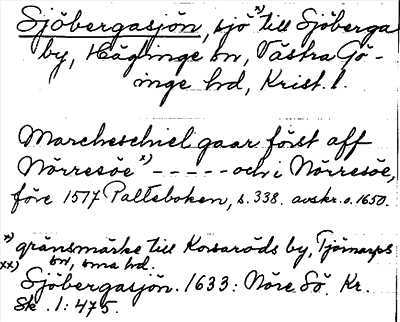 Sjöbergasjön, sjö x) till Sjöberga
by, Häglinge sn, Västra Gö-
inge hd, Krist. l.
Marcheschiel gaar först aff
Nörresöe x) ----- och i Nörresöe,
före 1577 Palteboken, s. 338. avskr. o. 1650.
x) gränsmärke till Korsaröds by, Tjörnarps
sn, sma hd.
xx) Sjöbergasjön. 1633: Nöre Sö. Kr.
Sk. 1: 475.